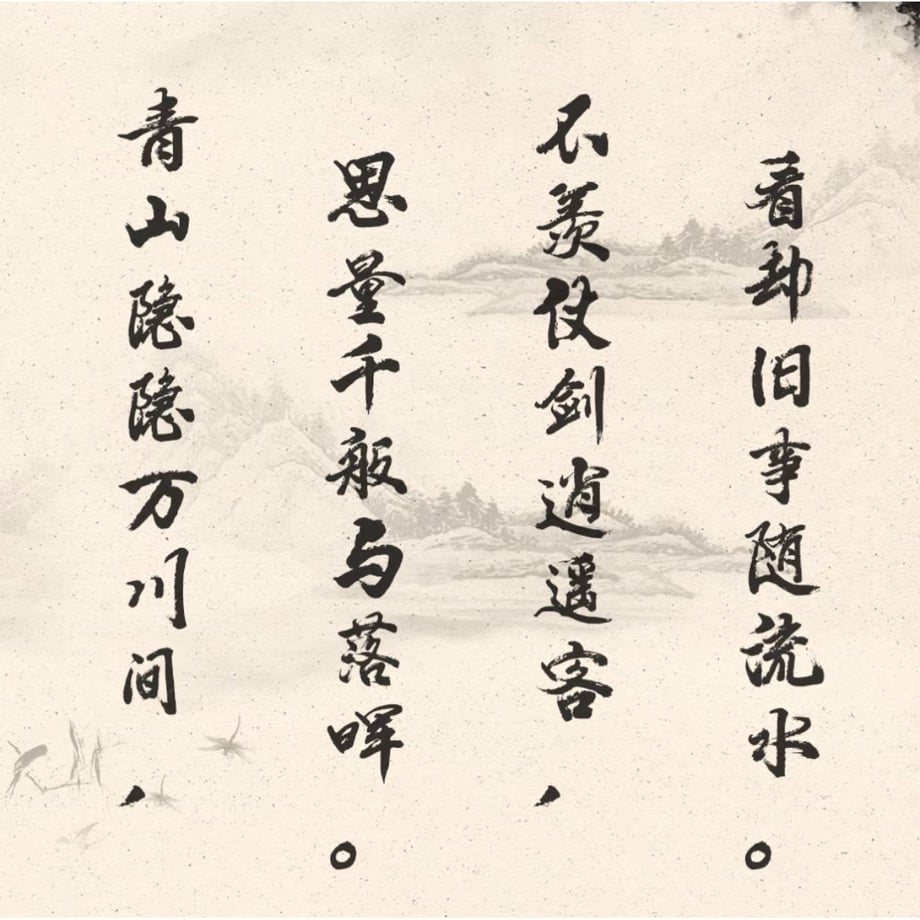 青山隐隐万川间，
思量千般与落晖。
不羡仗剑逍遥客，
看却旧事随流水。